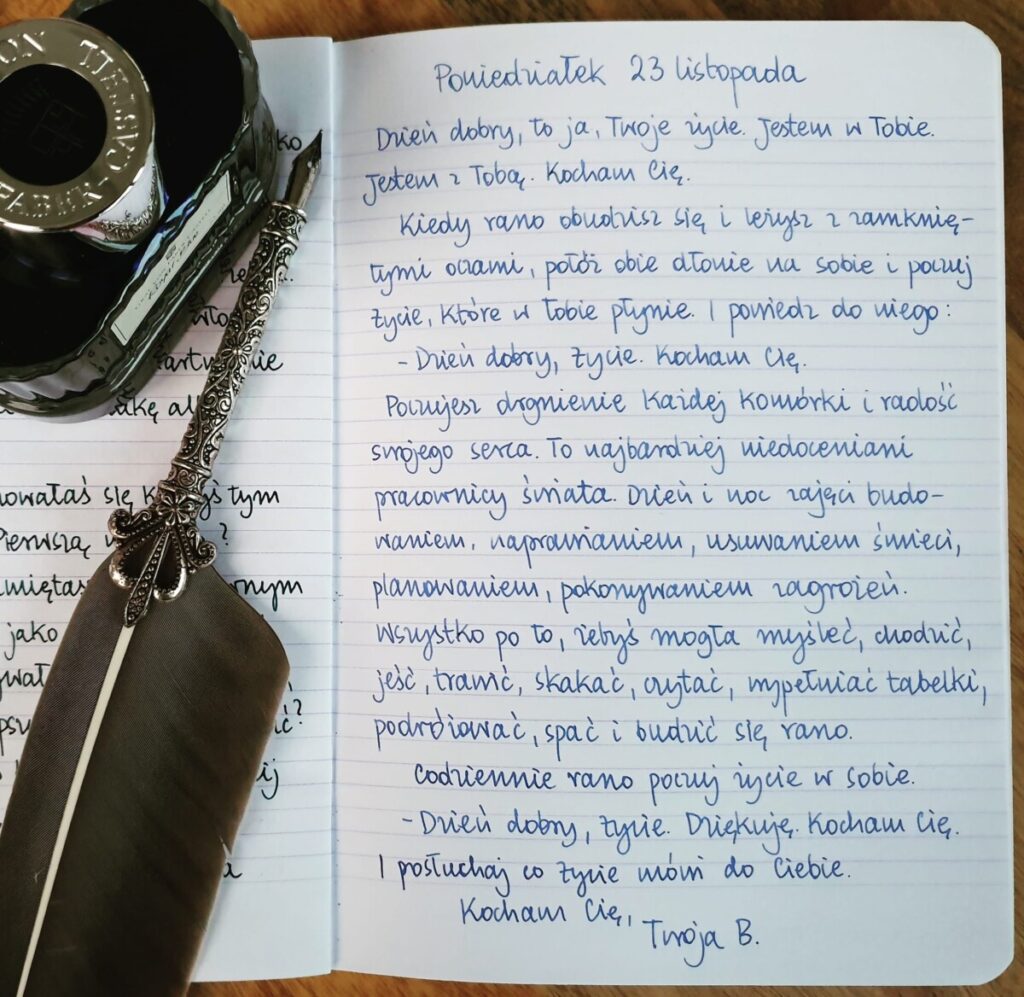 GRAF VON FABER-CASTELL
ko
artwienie
akę al
nowałaś się k yś tym
Pierwszą w ?
amiętas wnym
jako
Poniedziałek 23 listopada
Dzień dobry, to ja, Twoje życie. Jestem w Tobie.
Jestem z Tobą. Kocham Cię.
Kiedy rano obudzisz się i leżysz z zamknię-
tymi oczami, połóż obie dłonie na sobie i poczuj
życie, które w Tobie płynie. I powiedz do niego:
- Dzień dobry, Życie. Kocham Cię.
Poczujesz drgnienie każdej komórki i radość
swojego serca. To najbardziej niedoceniani
pracownicy świata. Dzień i noc zajęci budo-
waniem, naprawianiem, usuwaniem śmieci,
planowaniem, pokonywaniem zagrożeń.
Wszystko po to, żebyś mogła myśleć, chodzić,
jeść, trawić, skakać, czytać, wypełniać tabelki,
podróżować, spać i budzić się rano.
Codziennie rano poczuj życie w sobie.
- Dzień dobry, Życie. Dziękuję. Kocham Cię.
I posłuchaj co Życie mówi do Ciebie.
Kocham Cię,
Twoja B.